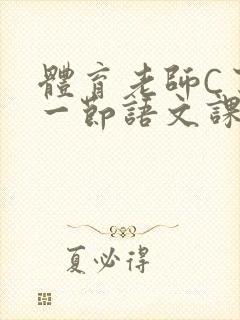 體育老師C
一節語文課
夏必得